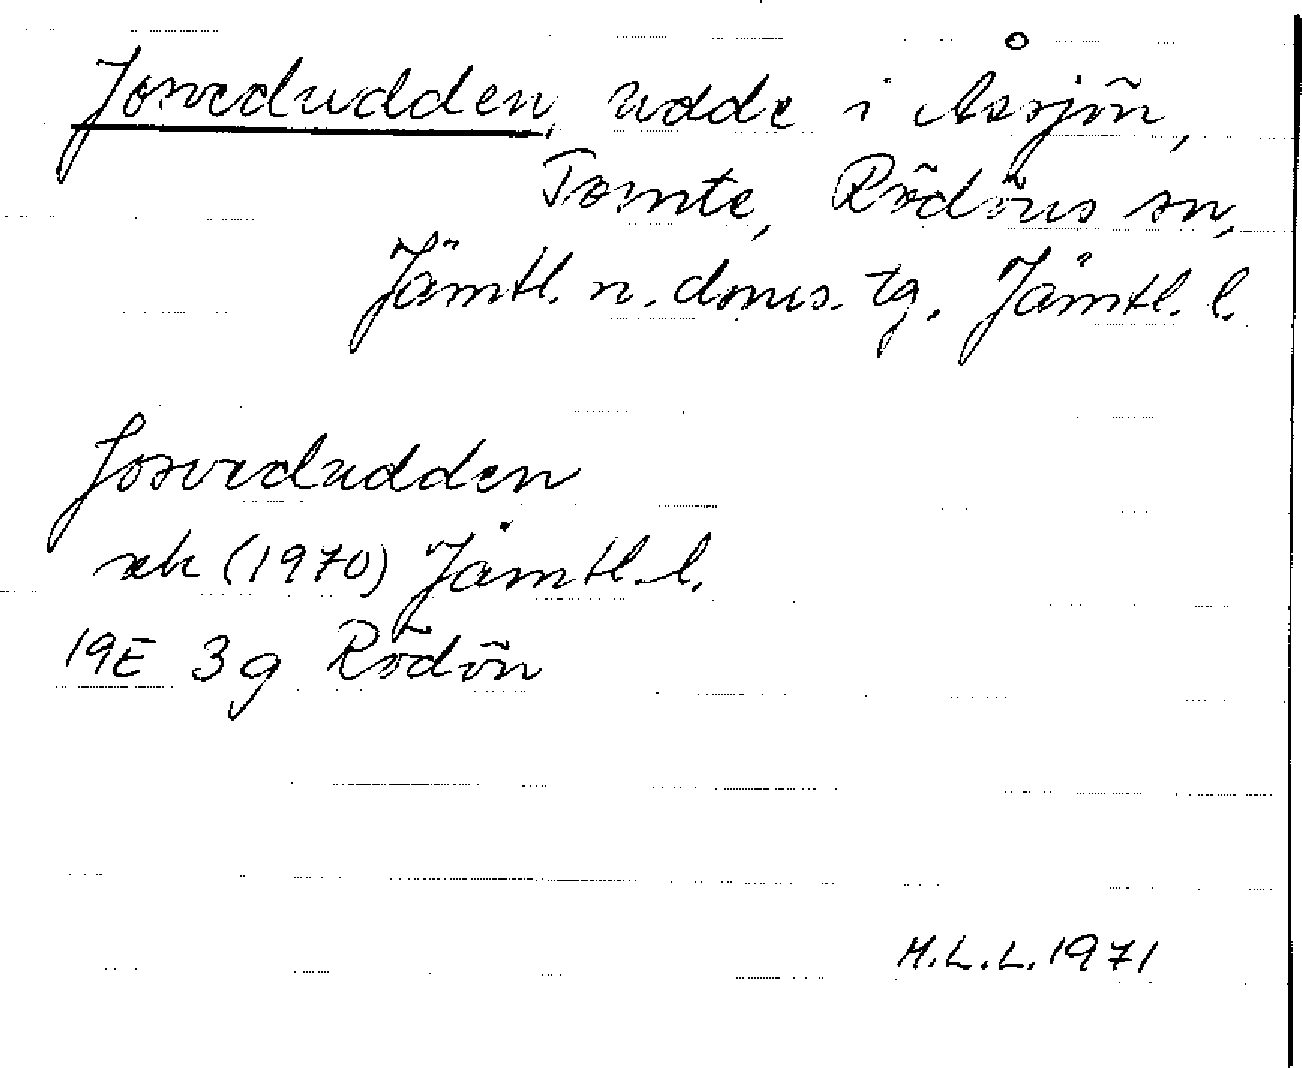 Josvedudden, udde i Åssjön,
Tomte, Rödöns sn,
Jämtl. n. doms. tg. Jämtl. l.
Josvedudden
ek (1970) Jämtl. l.
19E 3g Rödön
H.L.L. 1971